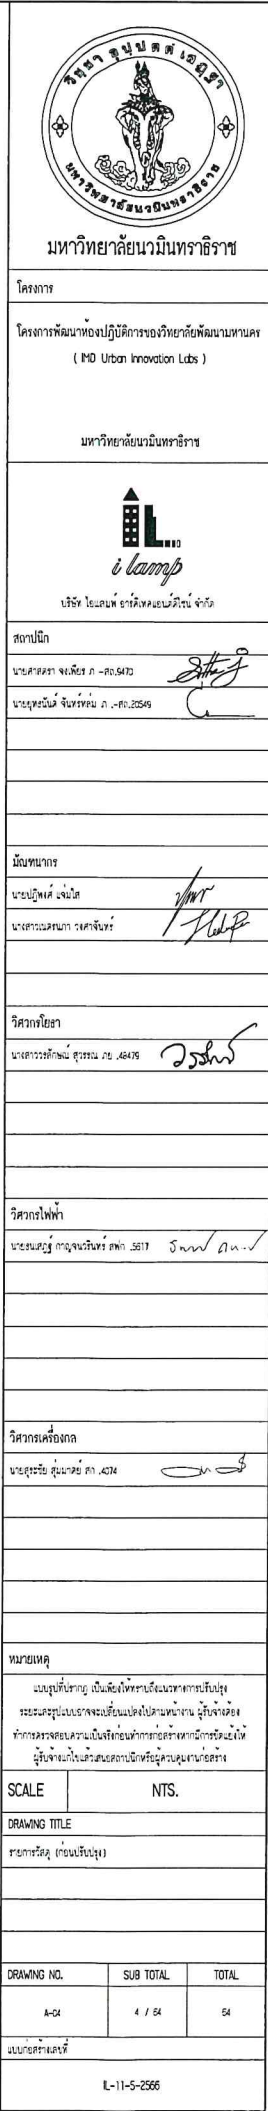 วิทฺยา อุปฺปตตํ เสฏฺฐา
มหาวิทยาลัยนวมินทราธิราช
มหาวิทยาลัยนวมินทราธิราช
โครงการ
โครงการพัฒนาห้องปฏิบัติการของวิทยาลัยพัฒนามหานคร
( IMD Urban Innovation Labs )
มหาวิทยาลัยนวมินทราธิราช
iL
i lamp
บริษัท ไอแลมพ์ อาร์คิเทคแอนด์ดีไซน์ จำกัด
สถาปนิก
นายศาสตรา จงเพียร ภ -สถ.9470
นายยุทธนันต์ จันทร์หล่ม ภ .-สถ.20549
มัณฑนากร
นายปฏิพงศ์ แจ่มใส
นางสาวเนตรนภา วงศาจันทร์
วิศวกรโยธา
นางสาววรลักษณ์ สุวรรณ ภย .48479
วิศวกรไฟฟ้า
นายธนเสฏฐ์ กาญจนวรินทร์ สฟก .5617
วิศวกรเครื่องกล
นายสุระชัย สุ่มมาตย์ สก .4074
หมายเหตุ
แบบรูปที่ปรากฏ เป็นเพียงให้ทราบถึงแนวทางการปรับปรุง
ระยะและรูปแบบอาจจะเปลี่ยนแปลงไปตามหน้างาน ผู้รับจ้างต้อง
ทำการตรวจสอบความเป็นจริงก่อนทำการก่อสร้างหากมีการขัดแย้งให้
ผู้รับจ้างแก้ไขแล้วเสนอสถาปนิกหรือผู้ควบคุมงานก่อสร้าง
SCALE NTS.
DRAWING TITLE
รายการวัสดุ (ก่อนปรับปรุง)
DRAWING NO. SUB TOTAL TOTAL
A-04 4 / 64 64
แบบก่อสร้างเลขที่
IL-11-5-2566